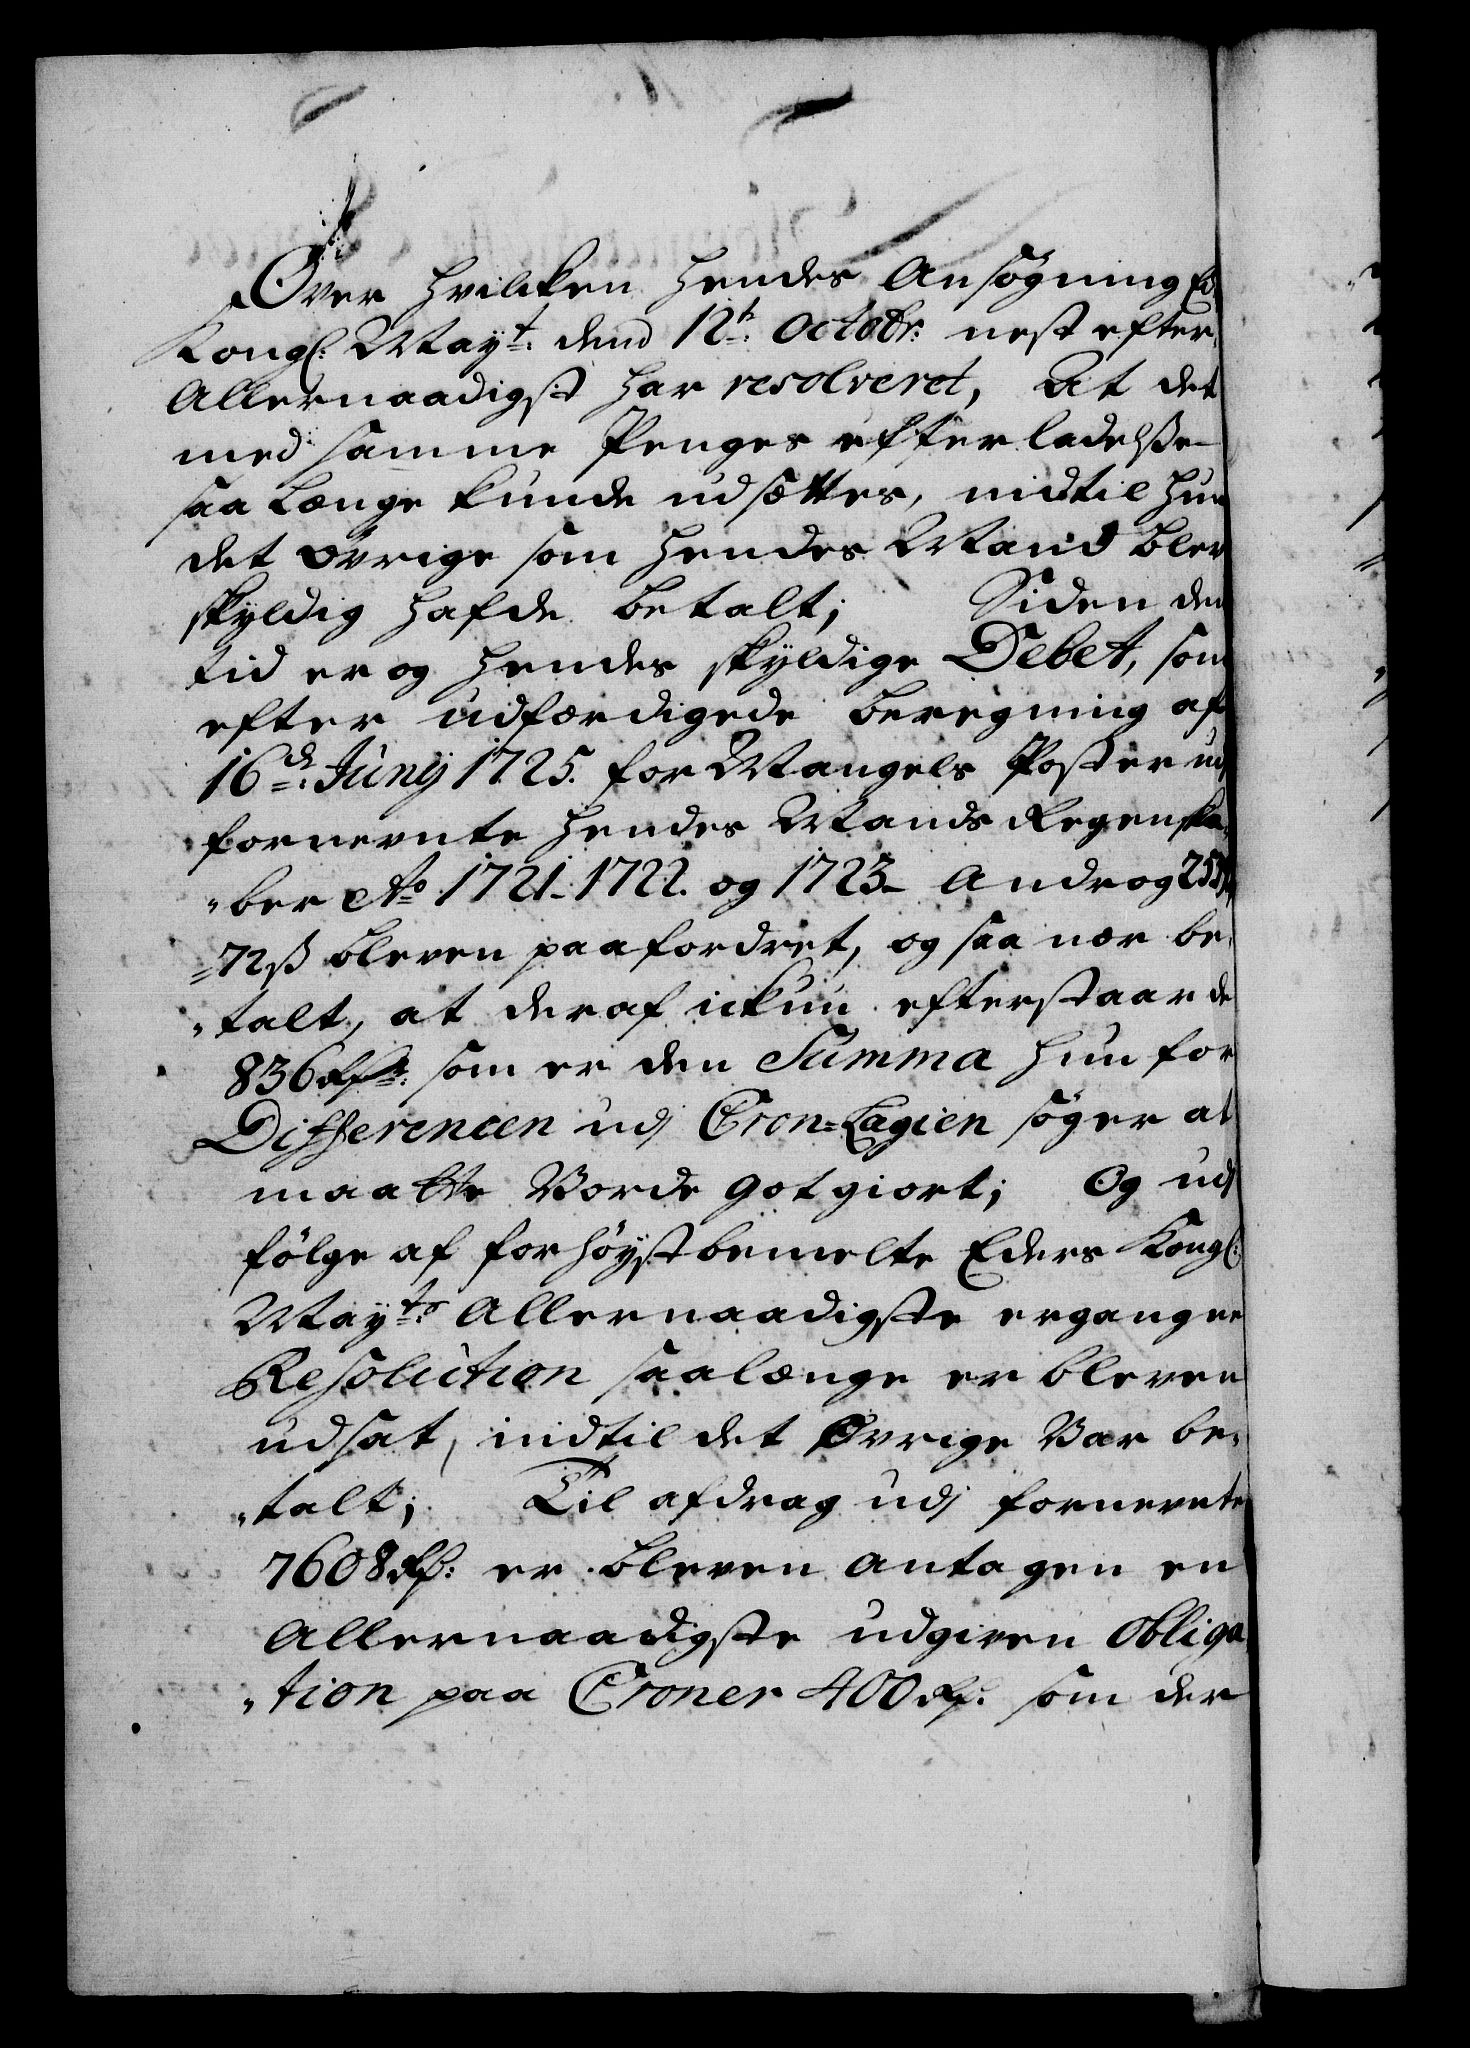 Over hvilcken hendes Ansøgning Ed:
Kongl: May:t dend 12te Octobr: nest efter
Allernaadigst har resolveret, At det
med samme Penges efterladelsse
saa længe kunde udsættes, indtil hun
det øvrige som hendes Mand blev
skyldig hafde betalt; Siden den
tid er og hendes skyldige Debet, som
efter udfærdigede beregning af
16de Junij 1725. for Mangels Poster udj
fornevnte hendes Mands Regenska-
"ber Ao 1721. 1722. og 1723. Androg
"72ß bleven paafordret, og saa nær be-
"talt, at deraf ickun efterstaar de
836 Rdr: som er den Summa hun for
Differencen udj Cron-Lagien søger at
maatte Vorde gotgiort; Og udj
følge af for høystbemelte Eders Kongl:
May:ts Allernaadigste ergangne
Resolution saalænge er bleven
udsat, indtil det Øvrige Var be-
"talt; Til afdrag udj fornevnte
7608 Rdr: er bleven antagen en
Allernaadigste udgiven Obliga-
"tion paa Croner 400 Rdr: som der